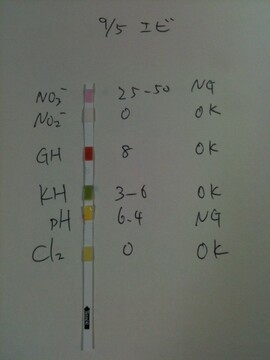 9/5 エビ
NO3⁻ 25-50 NG
NO2⁻ 0 OK
GH 8 OK
KH 3-6 OK
pH 6.4 NG
Cl2 0 OK